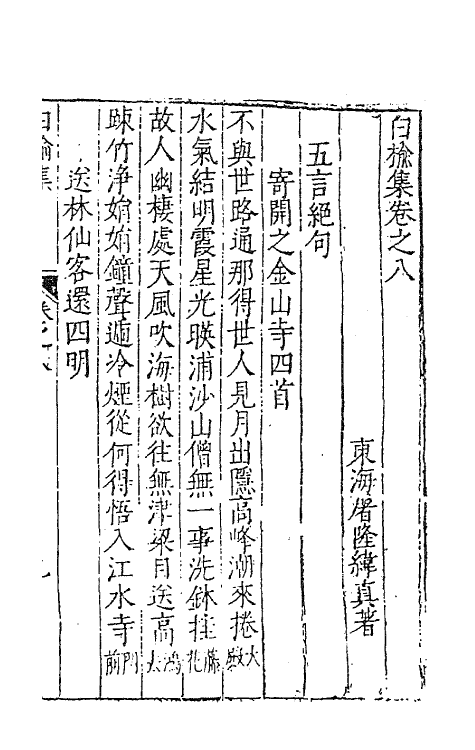 白榆集卷之八
東海屠隆緯真著
五言絕句
寄開之金山寺四首
不與世路通那得世人見月出隱高峰潮來捲大殿
水氣結明霞星光暎浦沙山僧無一事洗鉢挂藤花
故人幽棲處天風吹海樹欲往無津梁目送高鴻去
踈竹淨娟娟鐘聲遞冷煙從何得悟入江水寺門前
送林仙客還四明
白榆集
卷之八